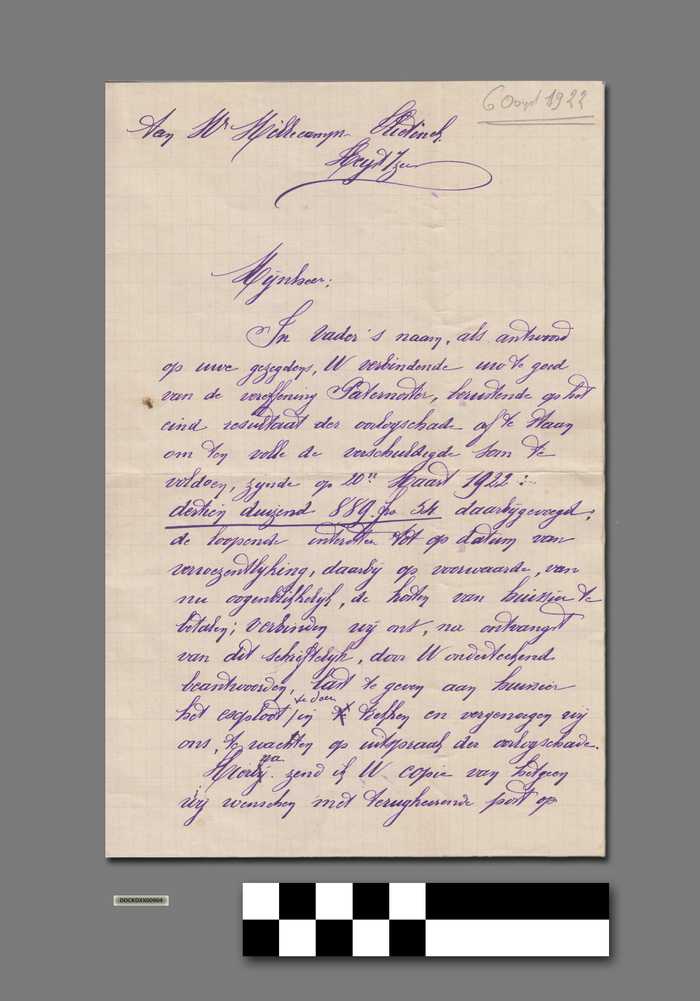 6 Oogst 1922
Aan Mr Millecamp
Heyst / zee
Mijnheer:
In vader's naam, als antwoord
op uwe gezegdens, U verbindende uw te goed
van de vereffening Paternoster, berustende op het
eind resultaat der oorlogschade af te staan
om ten volle de verschuldigde som te
voldoen, zynde op 20en Maart 1922 :
dertien duizend 889 fr 54 daarbijgevoegd,
de loopende interesten tot op datum van
verwezentlyking, daarby op voorwaarde, van
nu oogenblikkelyk, de kosten van huissier te
betalen; verbinden wij ons, na ontvangst
van dit schriftelijk, door U onderteekend
beantwoorden, last te geven aan huissier
het exploot in te doen trekken en vergenoegen wij
ons, te wachten op uitspraak der oorlogschade.
Hierna zend ik U copie van hetgeen
wij wenschen met terugkeerende post op
DOCKDXX00904